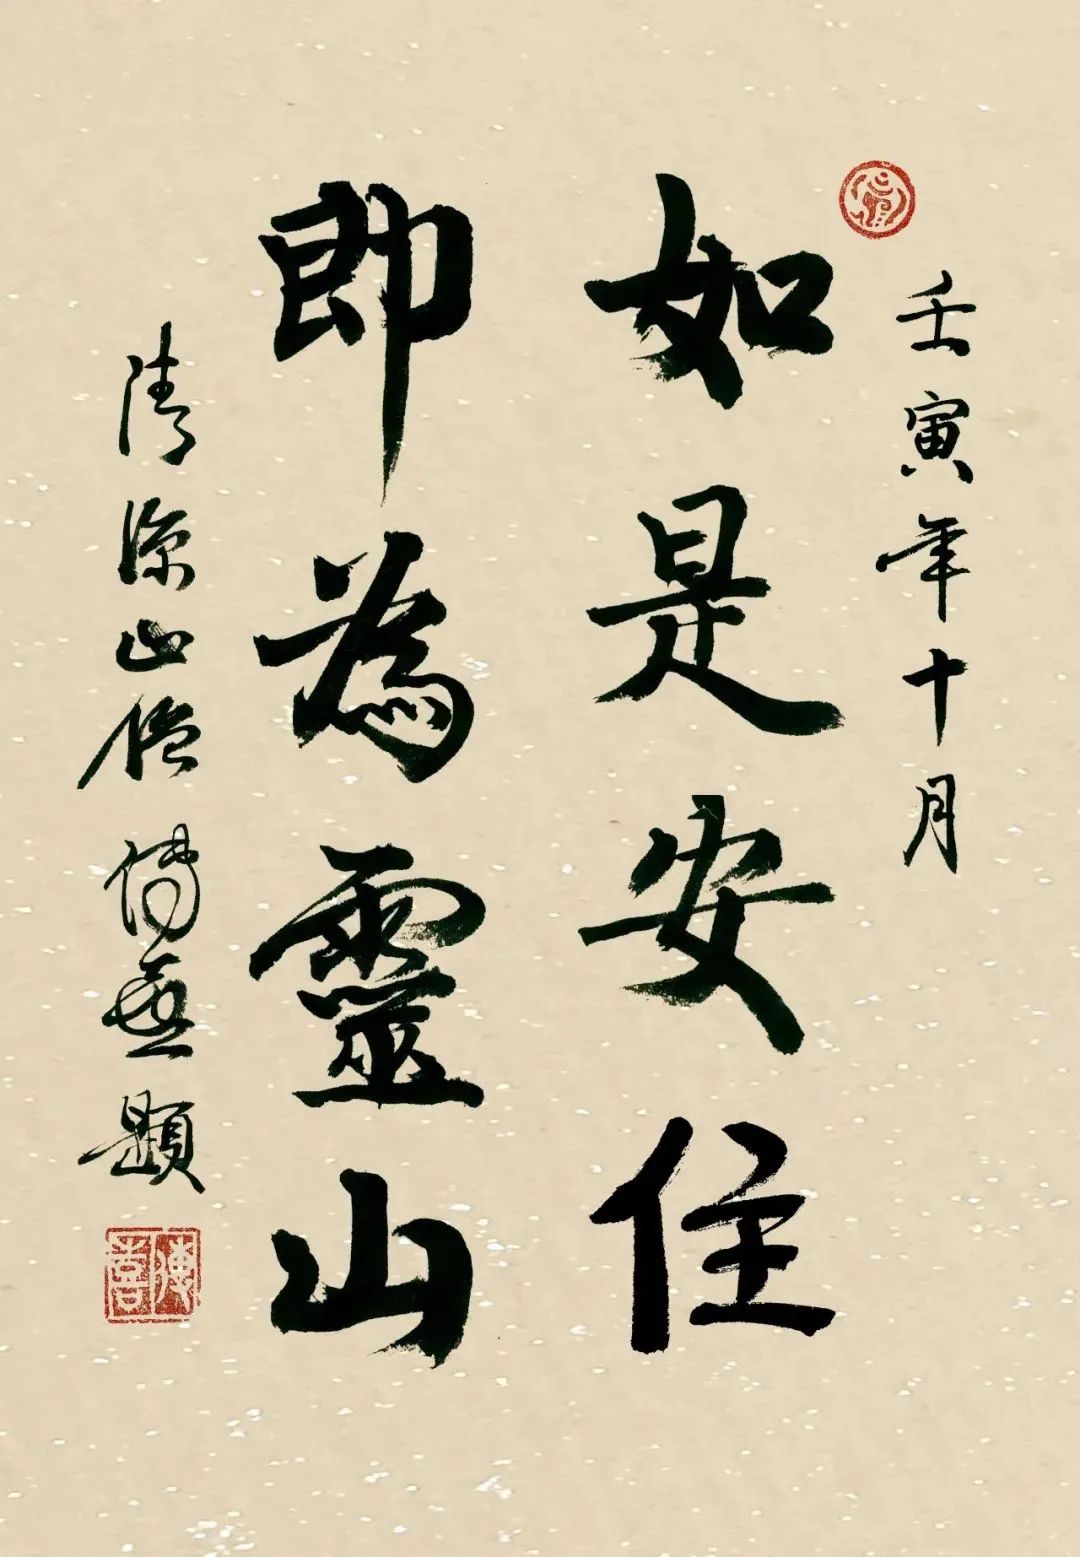 壬寅年十月
如是安住
即為靈山
清涼山僧傳喜題
傳喜